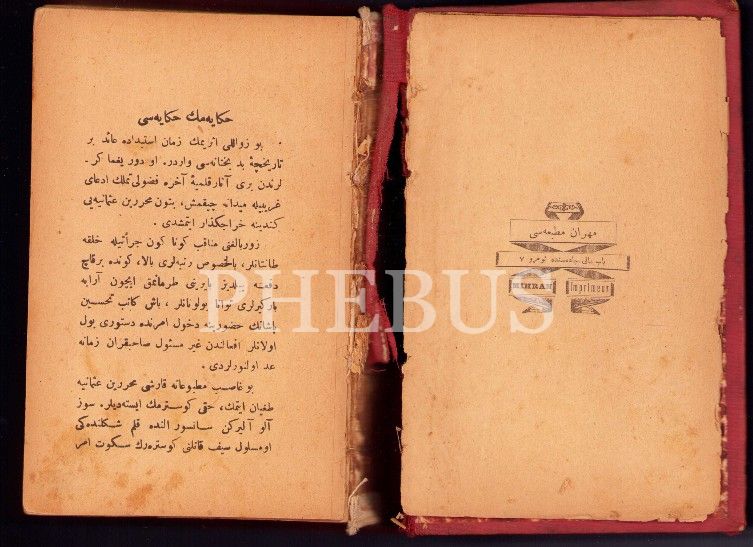 حكایه‌مك حكایه‌سی
بو زواللی اثریمك زمان استبداده عائد بر
تاریخچۀ بد بختانه‌سی واردر. او دور یغما كر-
لرندن بری آثار قلمیۀ آخره فضولی تملك ادعای
غریبیله میدانه چیقمش، بتون محررین عثمانیه‌یی
كندینه خراجگذار ایتمشدی.
زور بالغنی مناقب كونا كون جرأتیله خلقه
طانتانلر، بالخصوص رتبه‌لری بالا، كونده برقاچ
دفعه ییلدیز بایرینی طرمانمق ایچون آرابه
باركیرلری توانا بولونانلر، باش كاتب تحسین
پاشانك حضورینه دخول امرنده دستوری بول
اولانلر افعالندن غیر مسئول صاحبقران زمانه
عد اولنورلردی.
بو غاصب مطبوعاته قارشی محررین عثمانیه
طغیان ایتمك، حتی كوسترمك ایسته‌دیلر. سوز
آلو آلیركن سانسور النده قلم شكلنده‌كی
او مسلول سیف قاتلنی كوستره‌رك سكوت امر
مهران مطبعه‌سی
باب عالی جاده‌سنده نومرو ٧
MIHRAN Imprimeur
PHEBUS